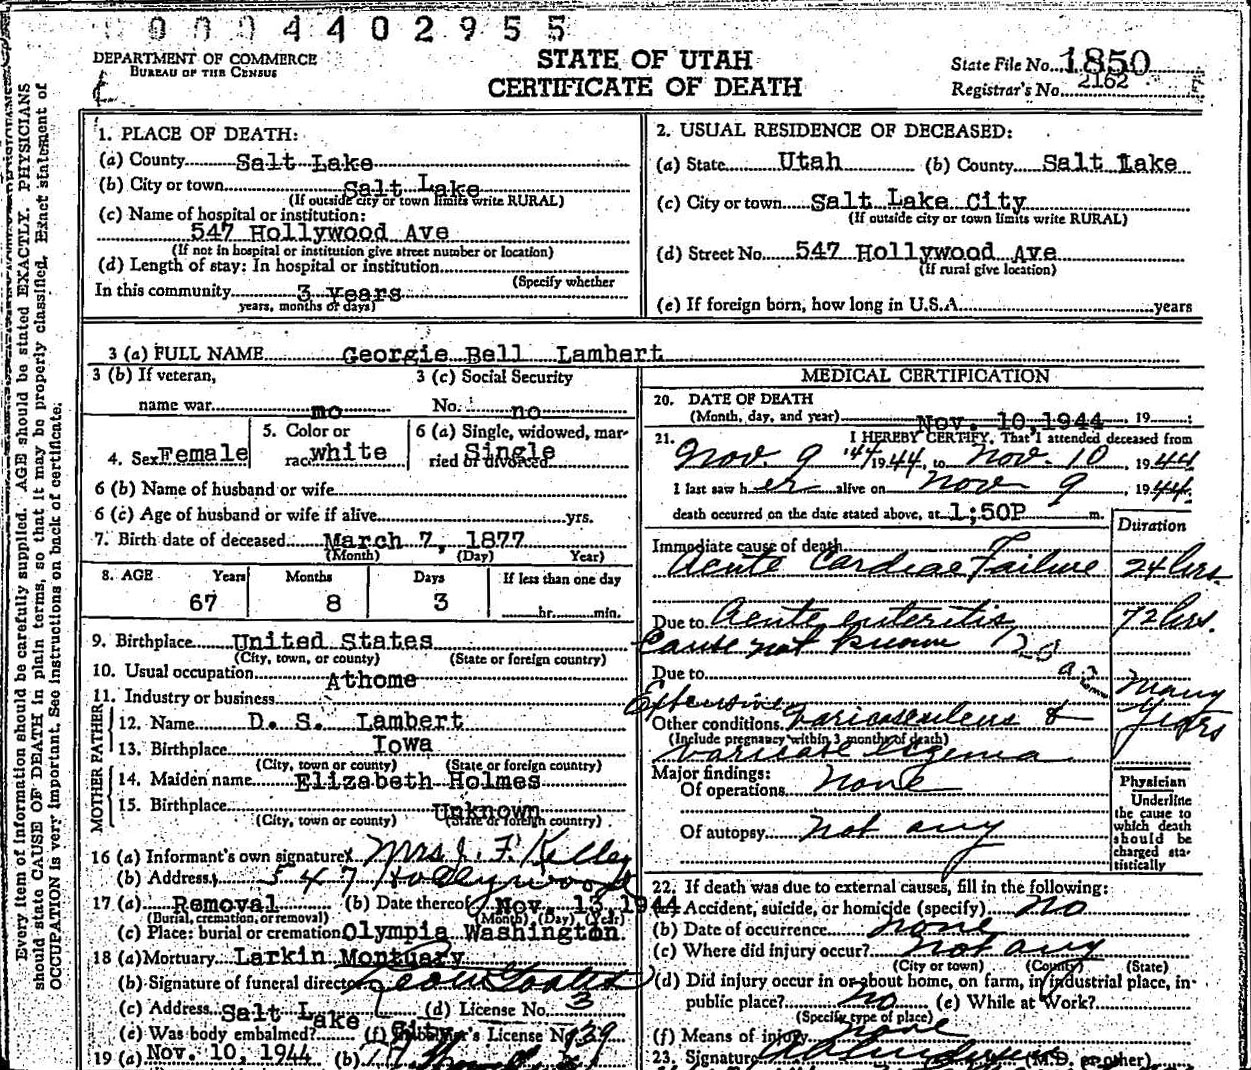 0004402955
DEPARTMENT OF COMMERCE
BUREAU OF THE CENSUS
STATE OF UTAH
CERTIFICATE OF DEATH
State File No. 1850
Registrar's No. 2162
Every item of information should be carefully supplied. AGE should be stated EXACTLY. PHYSICIANS
should state CAUSE OF DEATH in plain terms, so that it may be properly classified. Exact statement of
OCCUPATION is very important. See instructions on back of certificate.
1. PLACE OF DEATH:
(a) County Salt Lake
(b) City or town Salt Lake
(If outside city or town limits write RURAL)
(c) Name of hospital or institution:
547 Hollywood Ave
(If not in hospital or institution give street number or location)
(d) Length of stay: In hospital or institution
(Specify whether
In this community 3 years
years, months or days)
2. USUAL RESIDENCE OF DECEASED:
(a) State Utah (b) County Salt Lake
(c) City or town Salt Lake City
(If outside city or town limits write RURAL)
(d) Street No. 547 Hollywood Ave
(If rural give location)
(e) If foreign born, how long in U.S.A. years
3 (a) FULL NAME Georgie Bell Lambert
3 (b) If veteran, 3 (c) Social Security
name war no No. no
4. Sex Female 5. Color or race white 6 (a) Single, widowed, married or divorced Single
6 (b) Name of husband or wife
6 (c) Age of husband or wife if alive yrs.
7. Birth date of deceased March 7, 1877
(Month) (Day) Year)
8. AGE Years Months Days If less than one day
67 8 3 hr. min.
9. Birthplace United States
(City, town, or county) (State or foreign country)
10. Usual occupation Athome
11. Industry or business
FATHER
12. Name D. S. Lambert
13. Birthplace Iowa
(City, town or county) (State or foreign country)
MOTHER
14. Maiden name Elizabeth Holmes
15. Birthplace Unknown
(City, town or county) (State or foreign country)
16 (a) Informant's own signature x Mrs J. F. Kelley
(b) Address 547 Hollywood
17 (a) Removal (b) Date thereof Nov. 13, 1944
(Burial, cremation, or removal) (Month) (Day) (Year)
(c) Place: burial or cremation Olympia Washington
18 (a) Mortuary Larkin Mortuary
(b) Signature of funeral director
(c) Address Salt Lake City (d) License No. 3
(e) Was body embalmed? (f) License No. 139
19 (a) Nov. 10, 1944 (b)
MEDICAL CERTIFICATION
20. DATE OF DEATH
(Month, day, and year) Nov. 10, 1944, 19
21. I HEREBY CERTIFY, That I attended deceased from
Nov. 9 '44 1944, to Nov. 10, 1944
I last saw her alive on Nov 9, 1944.
death occurred on the date stated above, at 1;50P m.
Duration
Immediate cause of death
Acute Cardiac Failure 24 hrs.
Due to Acute enteritis 72 hrs.
Cause not known
Due to
Extensive many
Other conditions varicose ulcers & years
(Include pregnancy within 3 months of death)
varicose eczema
Major findings:
Of operations none
Of autopsy not any
Physician
Underline
the cause to
which death
should be
charged sta-
tistically
22. If death was due to external causes, fill in the following:
(a) Accident, suicide, or homicide (specify) no
(b) Date of occurrence none
(c) Where did injury occur? not any
(City or town) (County) (State)
(d) Did injury occur in or about home, on farm, in industrial place, in
public place? no (e) While at Work?
(Specify type of place)
(f) Means of injury none
23. Signature (M.D. or other)